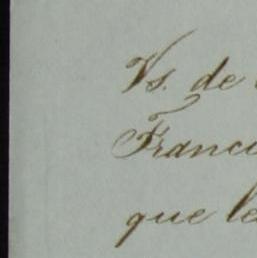 Vs. de
Franci
que le